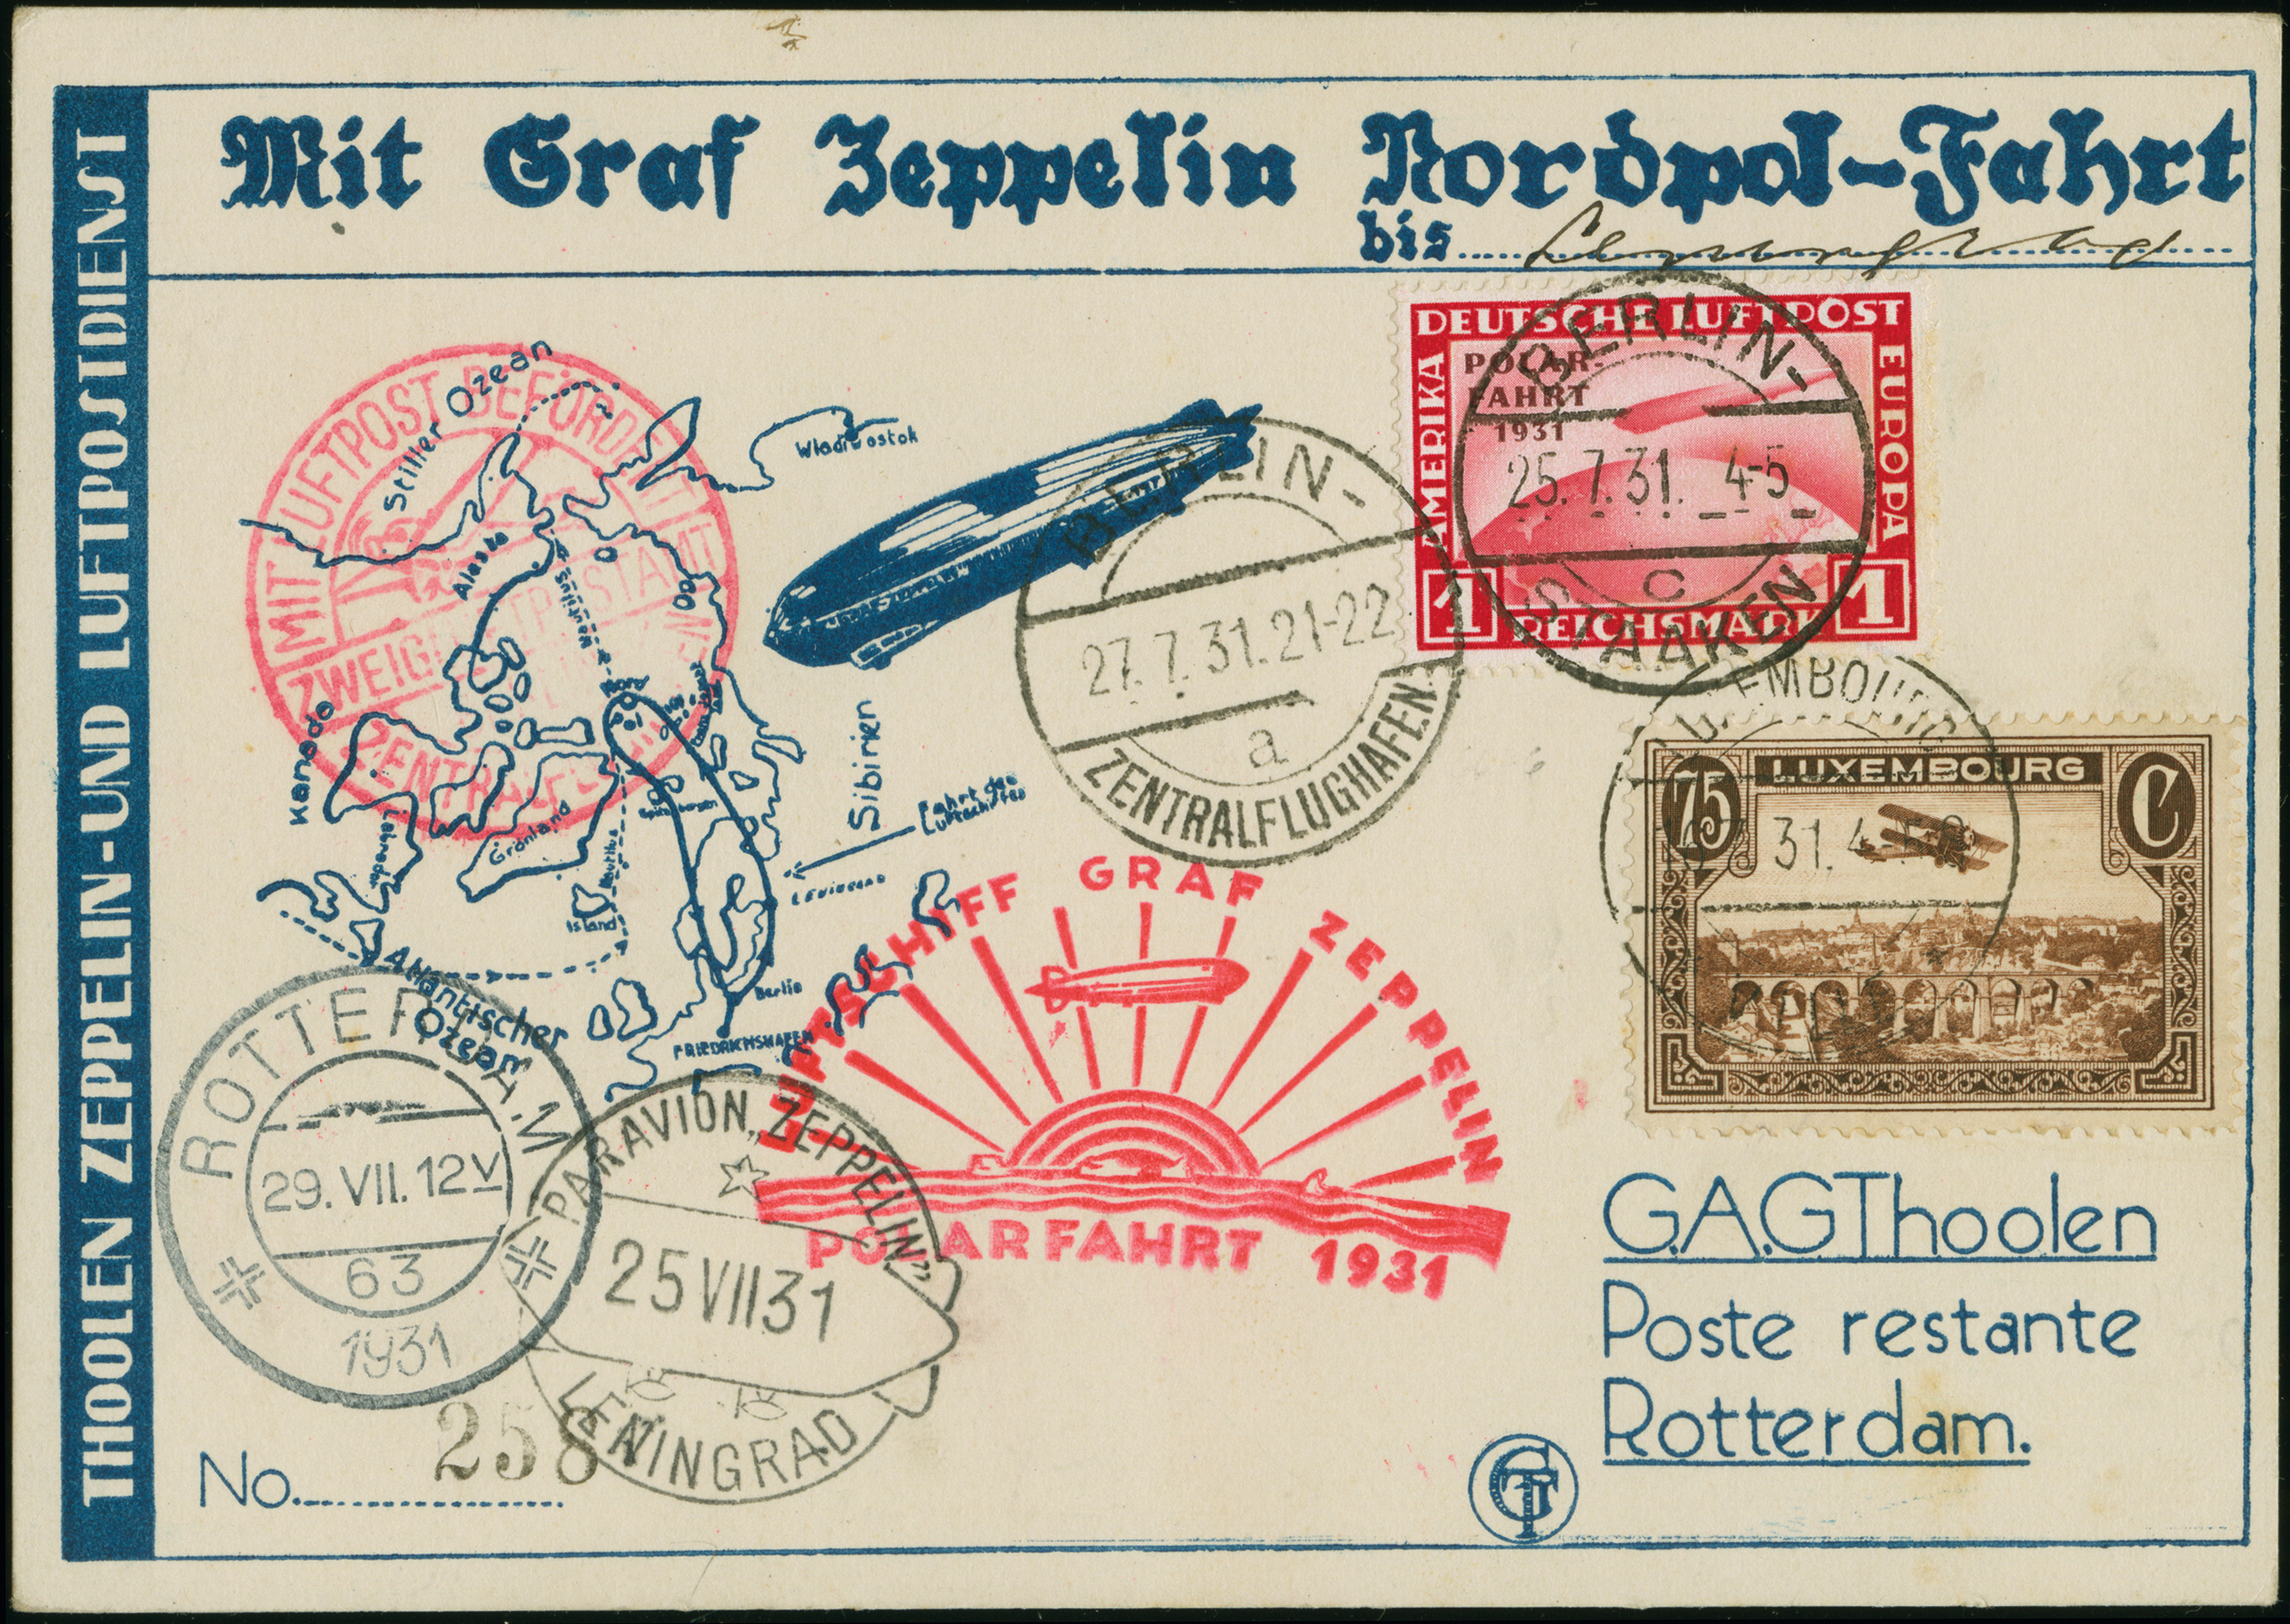 Mit Graf Zeppelin Nordpol-Fahrt
bis
THOOLEN ZEPPELIN-UND LUFTPOSTDIENST
MIT LUFTPOST BEFÖRDERT
Stiller Ozean
Wladiwostok
Alaska
Nautilus
Kanada
Labrador
Grönland
Nautilus
Island
Spitzbergen
Sibirien
Fahrt des
Luftschiffes
LENINGRAD
Berlin
FRIEDRICHSHAFEN
Atlantischer
Ozean
BERLIN-
27.7.31.21-22
a
ZENTRALFLUGHAFEN
DEUTSCHE LUFTPOST
AMERIKA
EUROPA
POLAR-
FAHRT
1931
1 REICHSMARK 1
BERLIN-
25.7.31. 4-5
c
STAAKEN
LUXEMBOURG
31.4-5
75 LUXEMBOURG C
LUFTSCHIFF GRAF ZEPPELIN
POLARFAHRT 1931
ROTTERDAM
29.VII.12V
63
1931
PARAVION „ZEPPELIN"
25VII31
LENINGRAD
No. 258
G.A.G Thoolen
Poste restante
Rotterdam.
GT